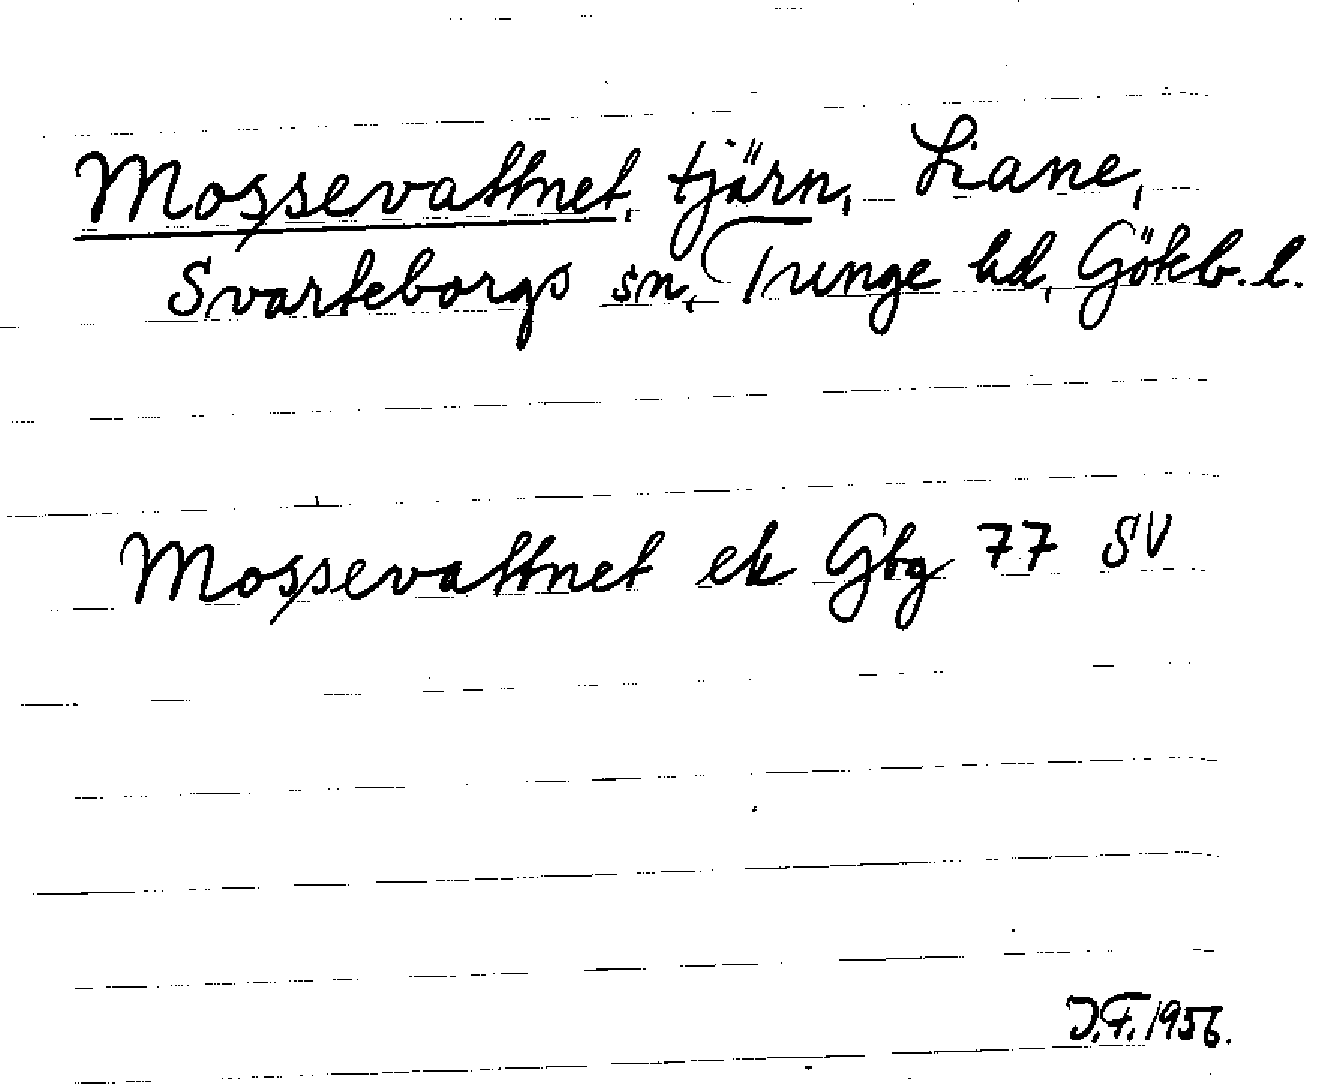 Mossevattnet, tjärn, Liane,
Svarteborgs sn, Tunge hd, Gökb. l.
Mossevattnet ek Gbg 77 SV
J.F. 1956.